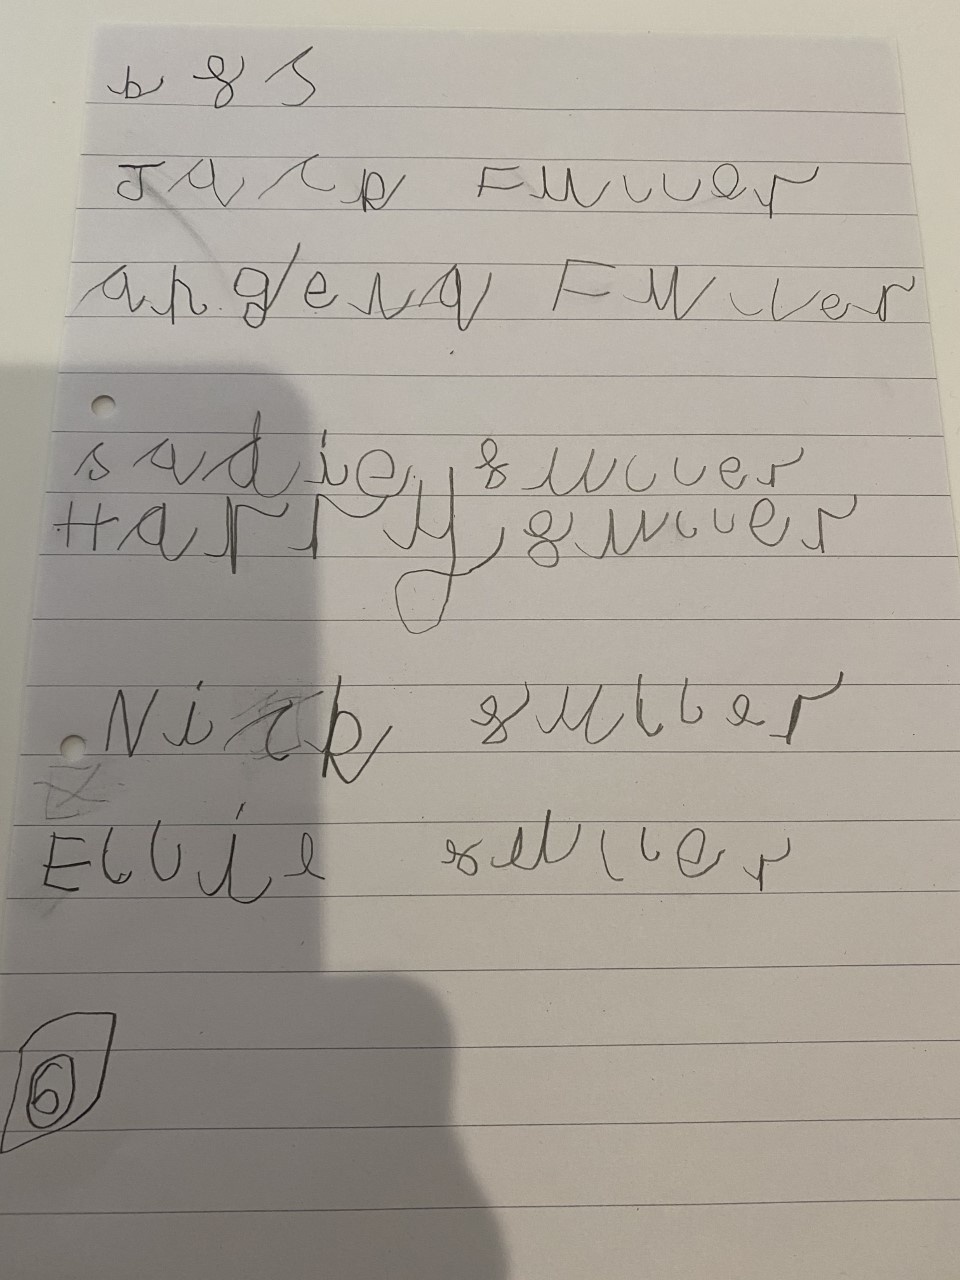 b f s
Jack Fuller
angela Fuller
sadie fuller
Harry fuller
Nick fuller
Ellie fuller
6